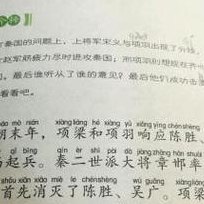 秦国的问题上，上将军宋义与项羽出现了分歧，
赵军筋疲力尽时进攻秦国；而项羽则想现在就
。最后谁听从了谁的意见？最后他们成功击
看看吧。
mò nián xiàng liáng hé xiàng yǔ xiǎng yìng chén shèng
期末年，项梁和项羽响应陈胜、
qǐ bīng qín èr shì pài dà jiàng zhāng hán shuài
起兵。秦二世派大将章邯率
shǒu xiān xiāo miè le chén shèng wú guǎng xiàng liáng
首先消灭了陈胜、吴广。项梁